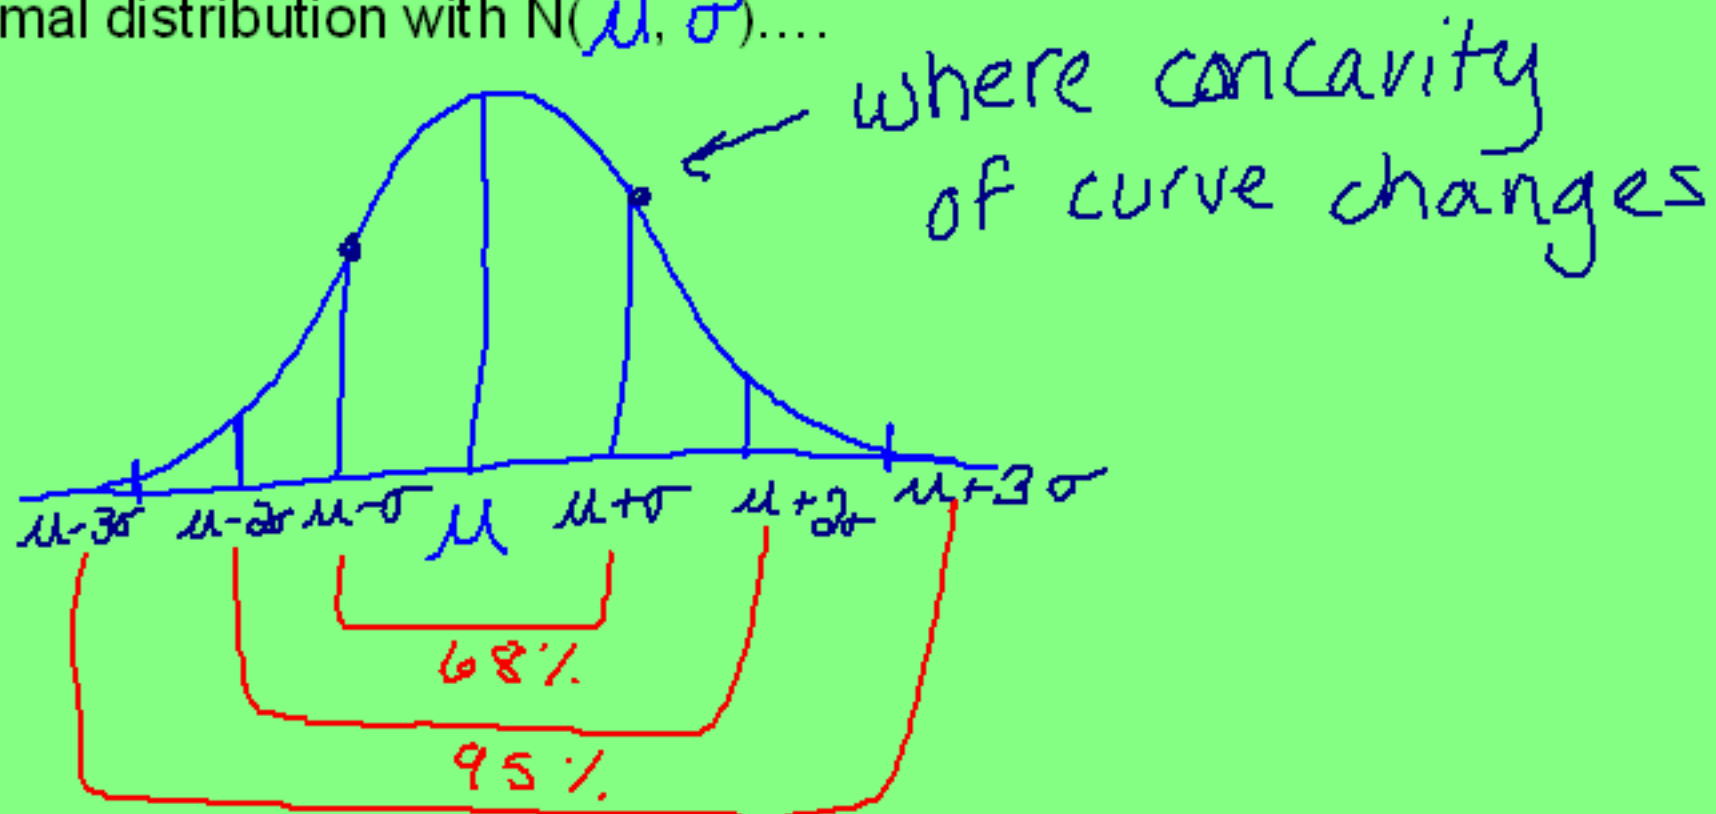 mal distribution with N(μ, σ)....
where concavity
of curve changes
μ-3σ μ-2σ μ-σ μ μ+σ μ+2σ μ+3σ
68%
95%